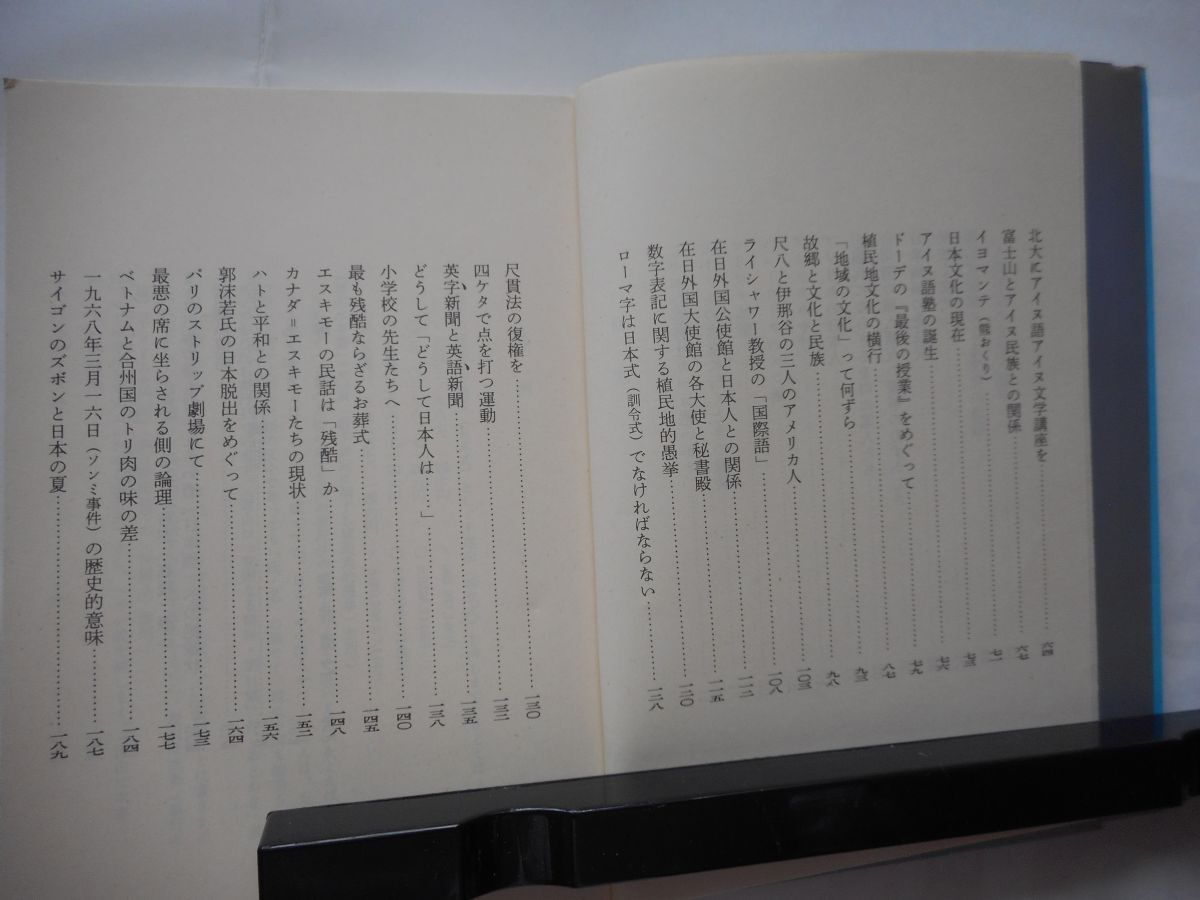 北大にアイヌ語アイヌ文学講座を……六四
富士山とアイヌ民族との関係……六七
イヨマンテ（熊おくり）……七一
日本文化の現在……七三
アイヌ語塾の誕生……七六
ドーデの『最後の授業』をめぐって……七九
植民地文化の横行……八七
「地域の文化」って何ずら……九三
故郷と文化と民族……九八
尺八と伊那谷の三人のアメリカ人……一〇三
ライシャワー教授の「国際語」……一〇八
在日外国公使館と日本人との関係……一一二
在日外国大使館の各大使と秘書殿……一一五
数字表記に関する植民地的愚挙……一二〇
ローマ字は日本式（訓令式）でなければならない……一二八
尺貫法の復権を……一三〇
四ケタで点を打つ運動……一三二
英字新聞と英語新聞……一三五
どうして「どうして日本人は……」……一三八
小学校の先生たちへ……一四〇
最も残酷ならざるお葬式……一四五
エスキモーの民話は「残酷」か……一四八
カナダ＝エスキモーたちの現状……一五二
ハトと平和との関係……一五六
郭沫若氏の日本脱出をめぐって……一六四
パリのストリップ劇場にて……一七三
最悪の席に坐らされる側の論理……一七七
ベトナムと合州国のトリ肉の味の差……一八四
一九六八年三月一六日（ソンミ事件）の歴史的意味……一八七
サイゴンのズボンと日本の夏……一八九